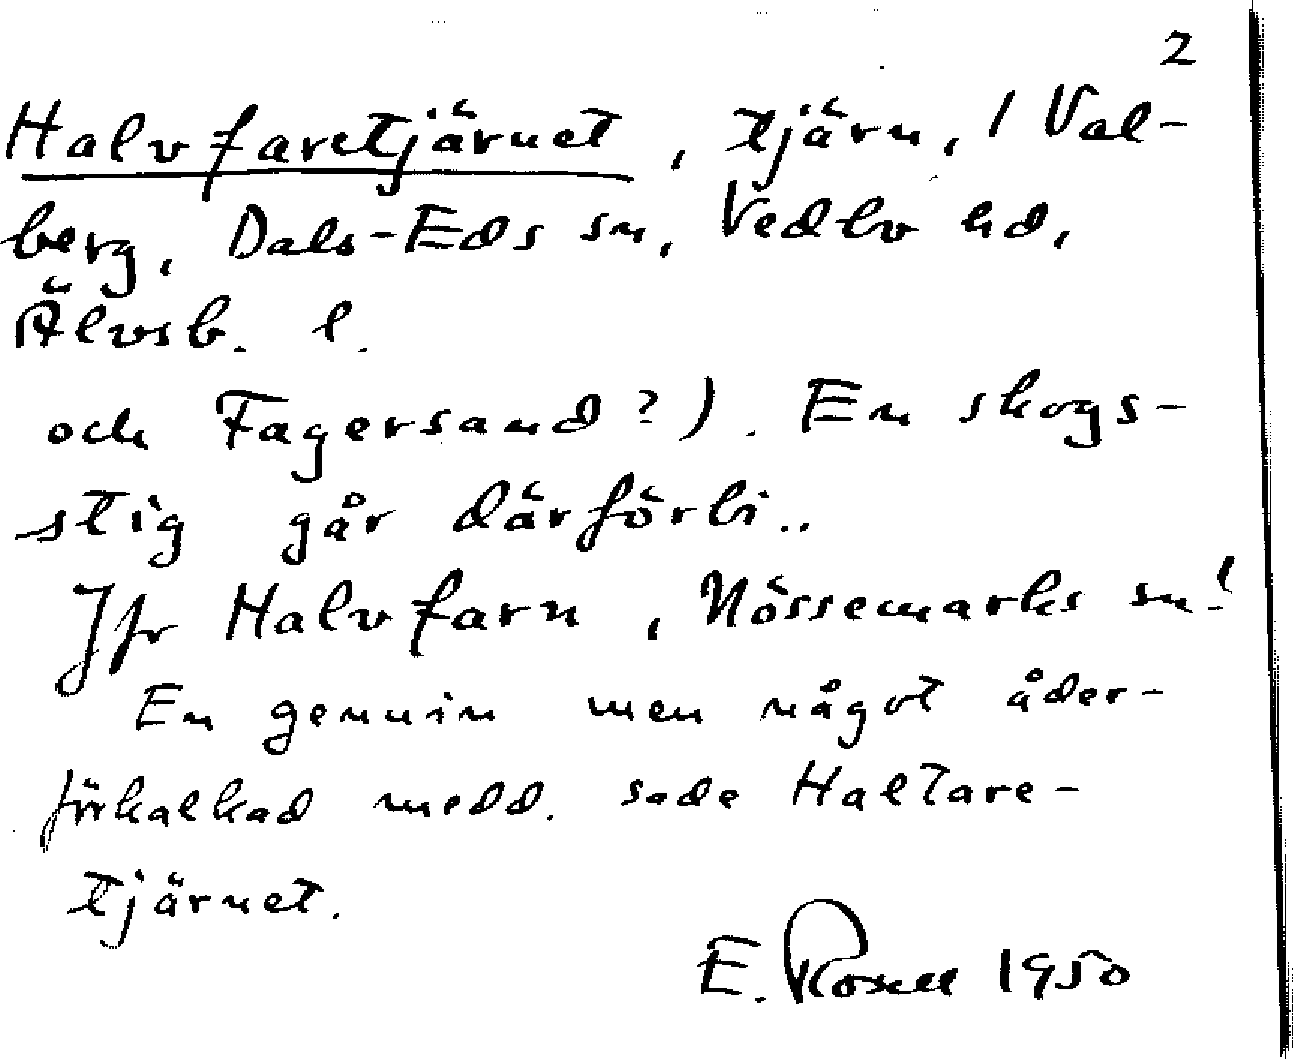 2
Halvfaretjärnet, tjärn, / Val-
berg, Dals-Eds sn, Vedbo hd,
Älvsb. l.
och Fagersand?). En skogs-
stig går därförbi..
Jfr Halvfarn, Nössemarks sn!
En genuin men något åder-
förkalkad medd. sade Haltare-
tjärnet.
E. Rosell 1950